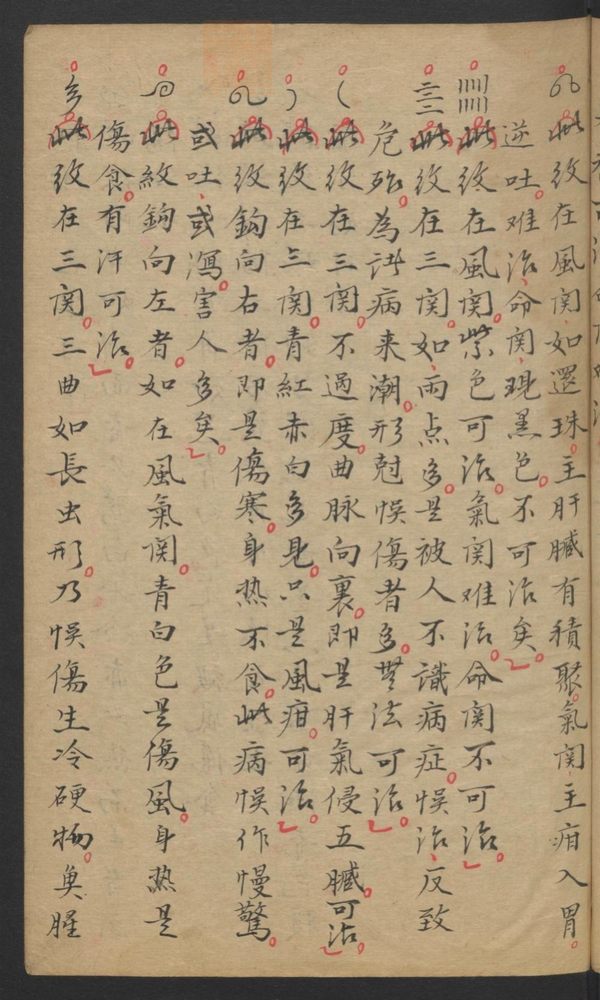 此纹在風関如還珠主肝臟有積聚氣関主疳入胃
逆吐难治命関現黑色不可治矣
此纹在風関紫色可治氣関难治命関不可治
此纹在三関如雨点多是被人不識病症悞治反致
危殆為訛病来潮形尅悞傷者多無法可治
此纹在三関不過度曲脉向裏即是肝氣侵五臟可治
此纹在三関青紅赤白多見只是風疳可治
此纹鈎向右者即是傷寒身热不食此病悞作慢驚
或吐或瀉害人多矣
此紋鈎向左者如在風氣関青白色是傷風身热是
傷食有汗可治
此纹在三関三曲如長虫形乃悞傷生冷硬物魚腥